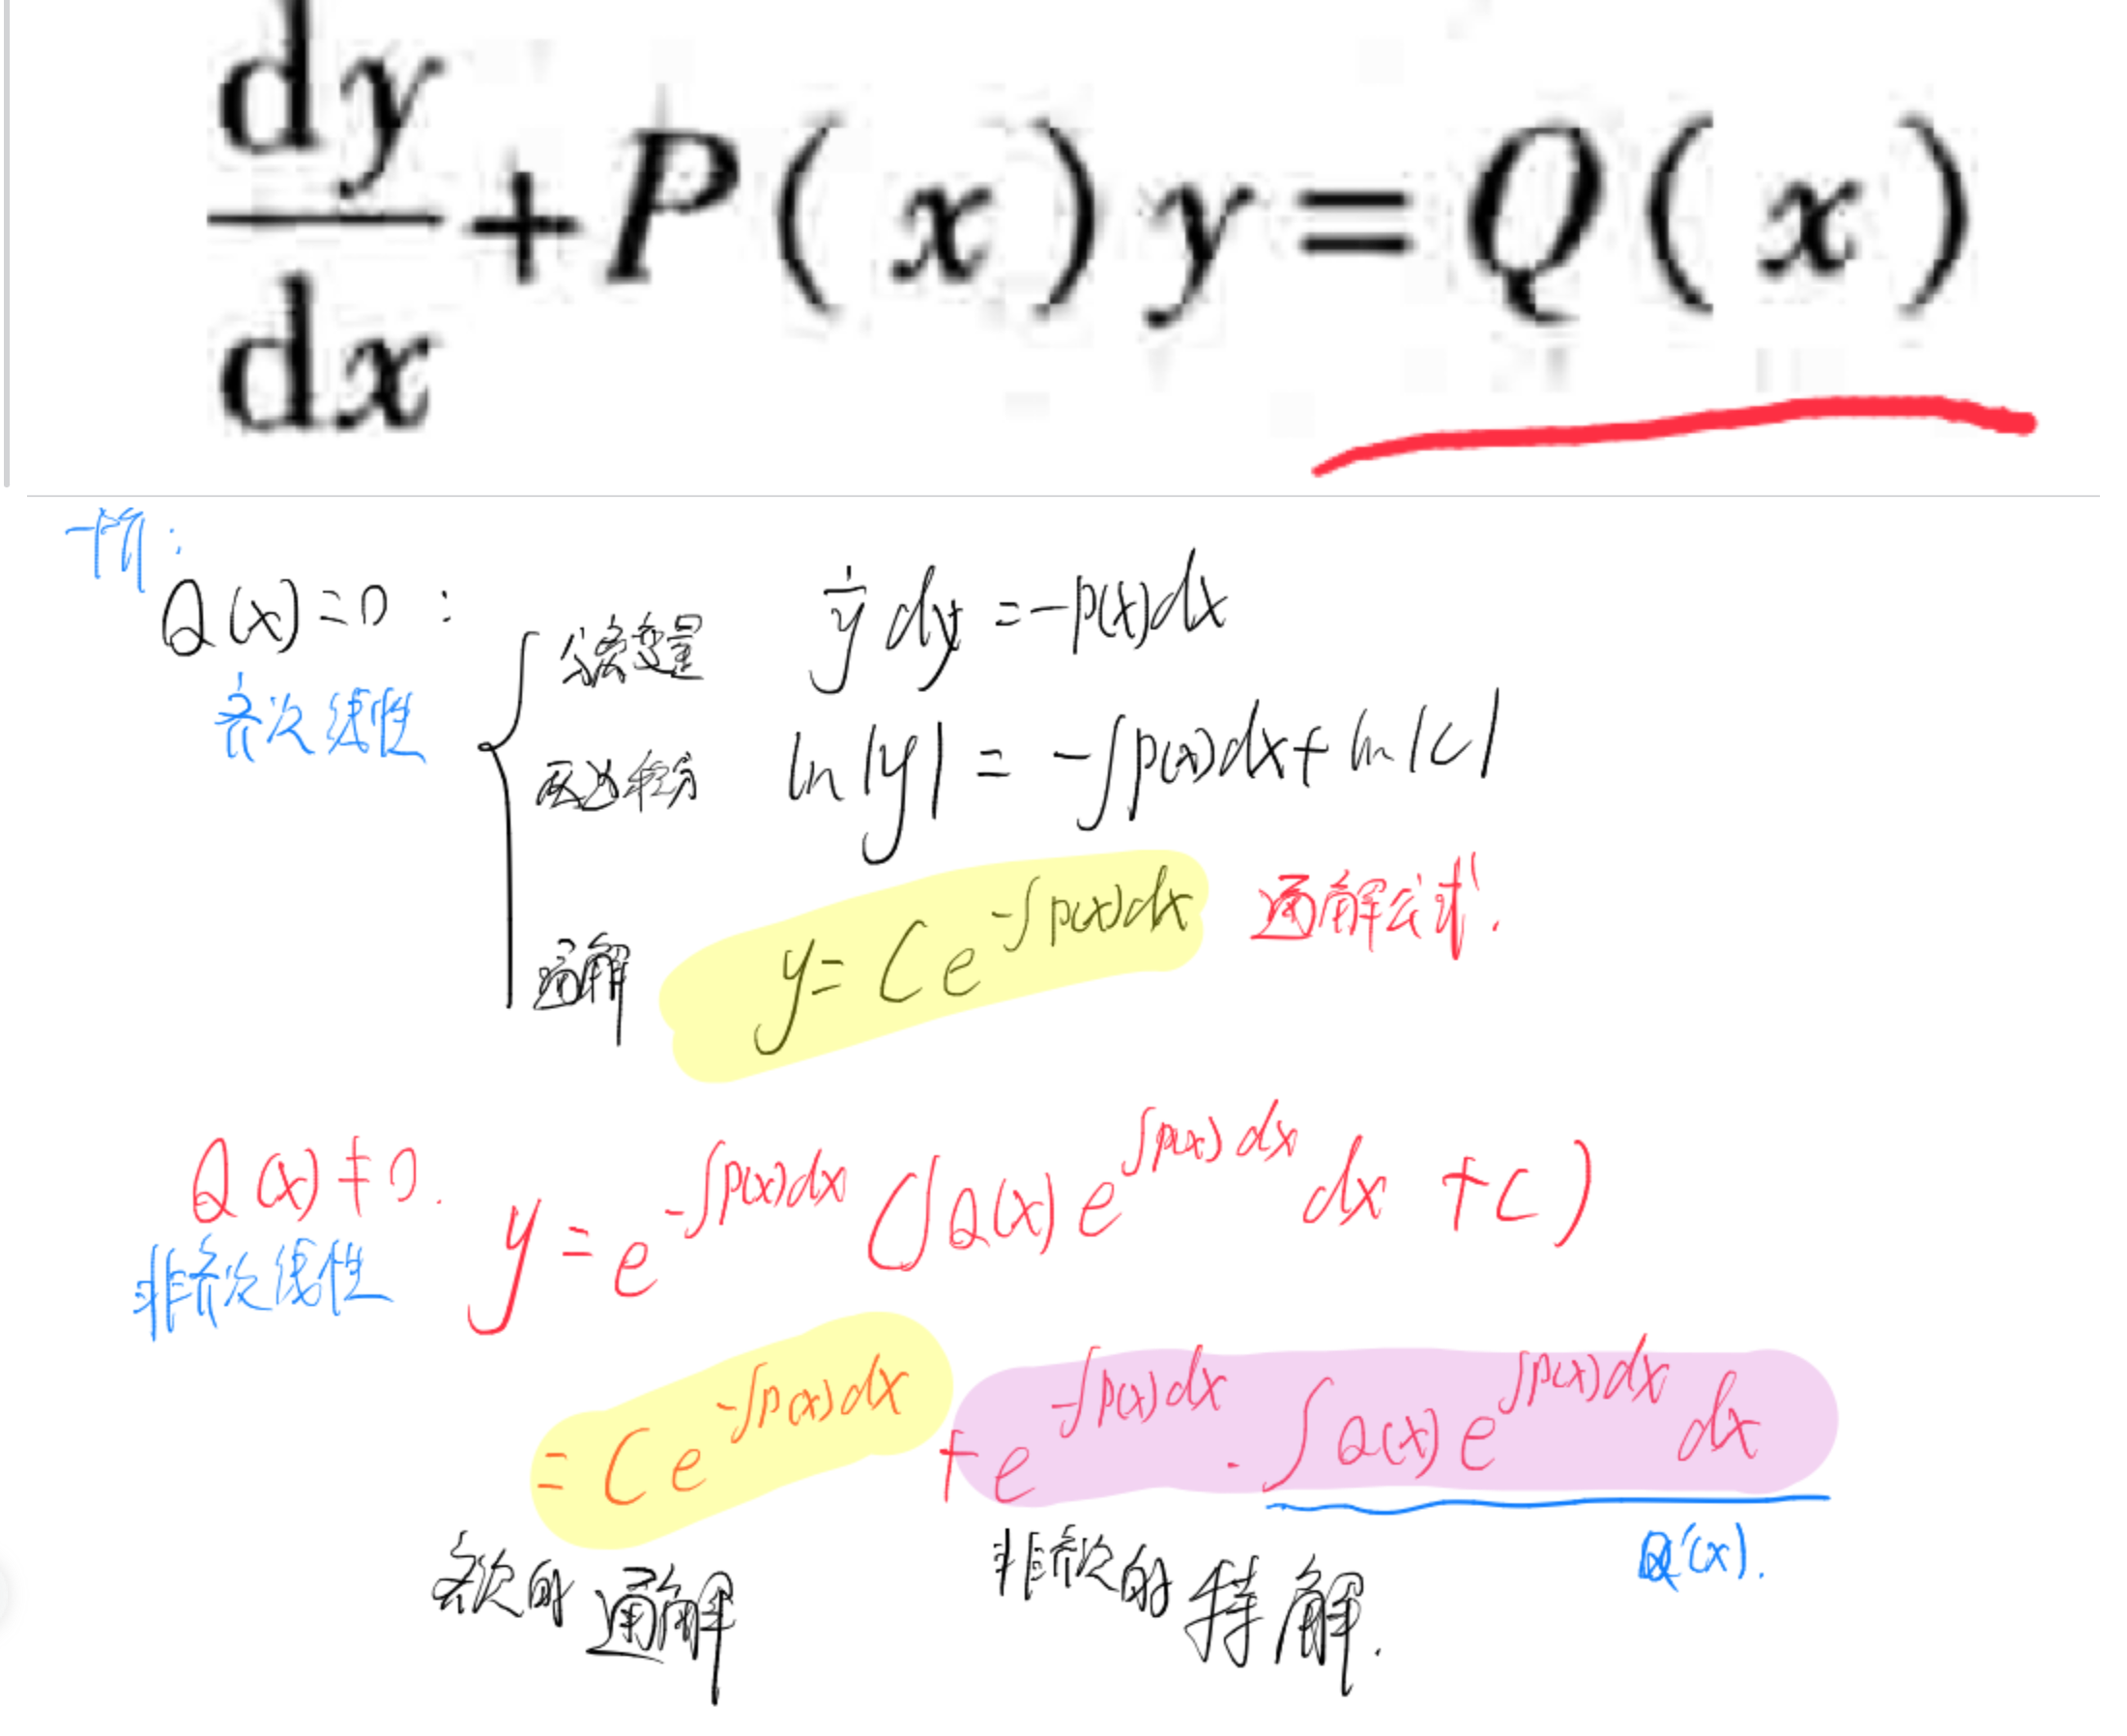 dy/dx + P(x)y = Q(x)
一阶:
Q(x)=0 :
齐次线性
分离变量 1/y dy = -p(x)dx
两边积分 ln|y| = -∫p(x)dx + ln|C|
通解 y = Ce^{-∫p(x)dx} 通解公式.
Q(x)≠0. y = e^{-∫p(x)dx} (∫Q(x)e^{∫p(x)dx} dx + C)
非齐次线性
= Ce^{-∫p(x)dx} + e^{-∫p(x)dx} · ∫Q(x)e^{∫p(x)dx} dx
Q'(x).
齐次的通解 非齐次的特解.